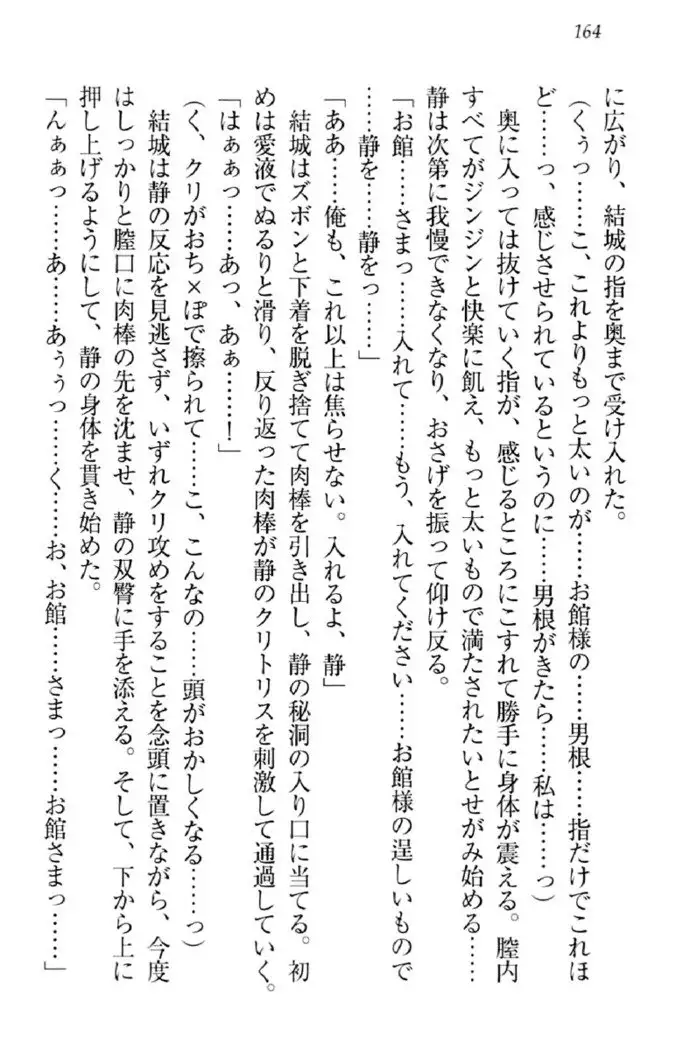 164
に広がり、結城の指を奥まで受け入れた。
(くぅっ……こ、これよりもっと太いのが……お館様の……男根……指だけでこれほ
ど……っ、感じさせられているというのに……男根がきたら……私は……っ)
奥に入っては抜けていく指が、感じるところにこすれて勝手に身体が震える。膣内
すべてがジンジンと快楽に飢え、もっと太いもので満たされたいとせがみ始める……
静は次第に我慢できなくなり、おさげを振って仰け反る。
「お館……さまっ……入れて……もう、入れてください……お館様の逞しいもので
……静を……静をっ……」
「ああ……俺も、これ以上は焦らせない。入れるよ、静」
結城はズボンと下着を脱ぎ捨てて肉棒を引き出し、静の秘洞の入り口に当てる。初
めは愛液でぬるりと滑り、反り返った肉棒が静のクリトリスを刺激して通過していく。
「はぁぁっ……あっ、あぁ……！」
(く、クリがおち×ぽで擦られて……こ、こんなの……頭がおかしくなる……っ)
結城は静の反応を見逃さず、いずれクリ攻めをすることを念頭に置きながら、今度
はしっかりと膣口に肉棒の先を沈ませ、静の双臀に手を添える。そして、下から上に
押し上げるようにして、静の身体を貫き始めた。
「んぁぁっ……あ……あぅぅっ……く……お、お館……さまっ……お館さまっ……」